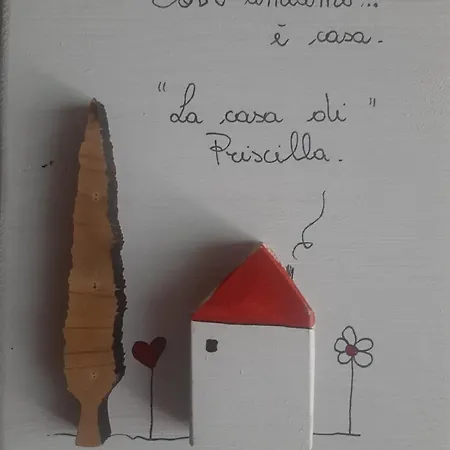 è casa.
"La casa di"
Priscilla.